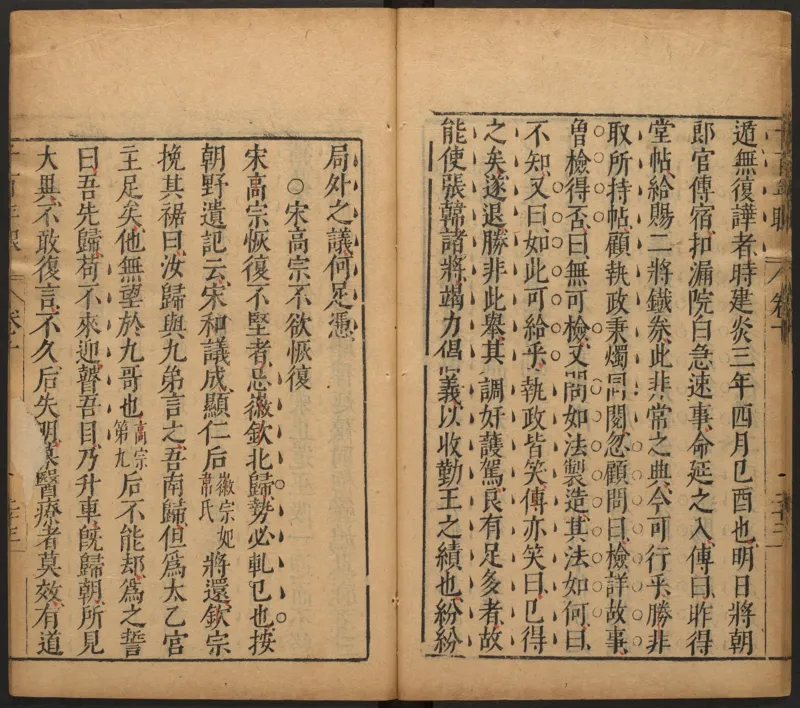 遁無復譁者時建炎三年四月已酉也明日將朝
郎官傳宿扣漏院白急速事命延之入傳曰昨得
堂帖給賜二將鐵券此非常之典今可行乎勝非
取所持帖顧執政秉燭同閱忽顧問曰檢詳故事
曾檢得否曰無可檢又問如法製造其法如何曰
不知又曰如此可給乎執政皆笑傳亦笑曰已得
之矣遂退勝非此舉其調奸護駕良有足多者故
能使張韓諸將竭力倡義以收勤王之績也紛紛
局外之議何足憑
○宋高宗不欲恢復
宋高宗恢復不堅者忌徽欽北歸勢必軋已也按
朝野遺記云宋和議成顯仁后徽宗妃韋氏將還欽宗
挽其裾曰汝歸與九弟言之吾南歸但為太乙宮
主足矣他無望於九哥也高宗第九后不能却為之誓
曰吾先歸苟不來迎瞽吾目乃升車既歸朝所見
大異不敢復言不久后失明募醫療者莫效有道
卷十